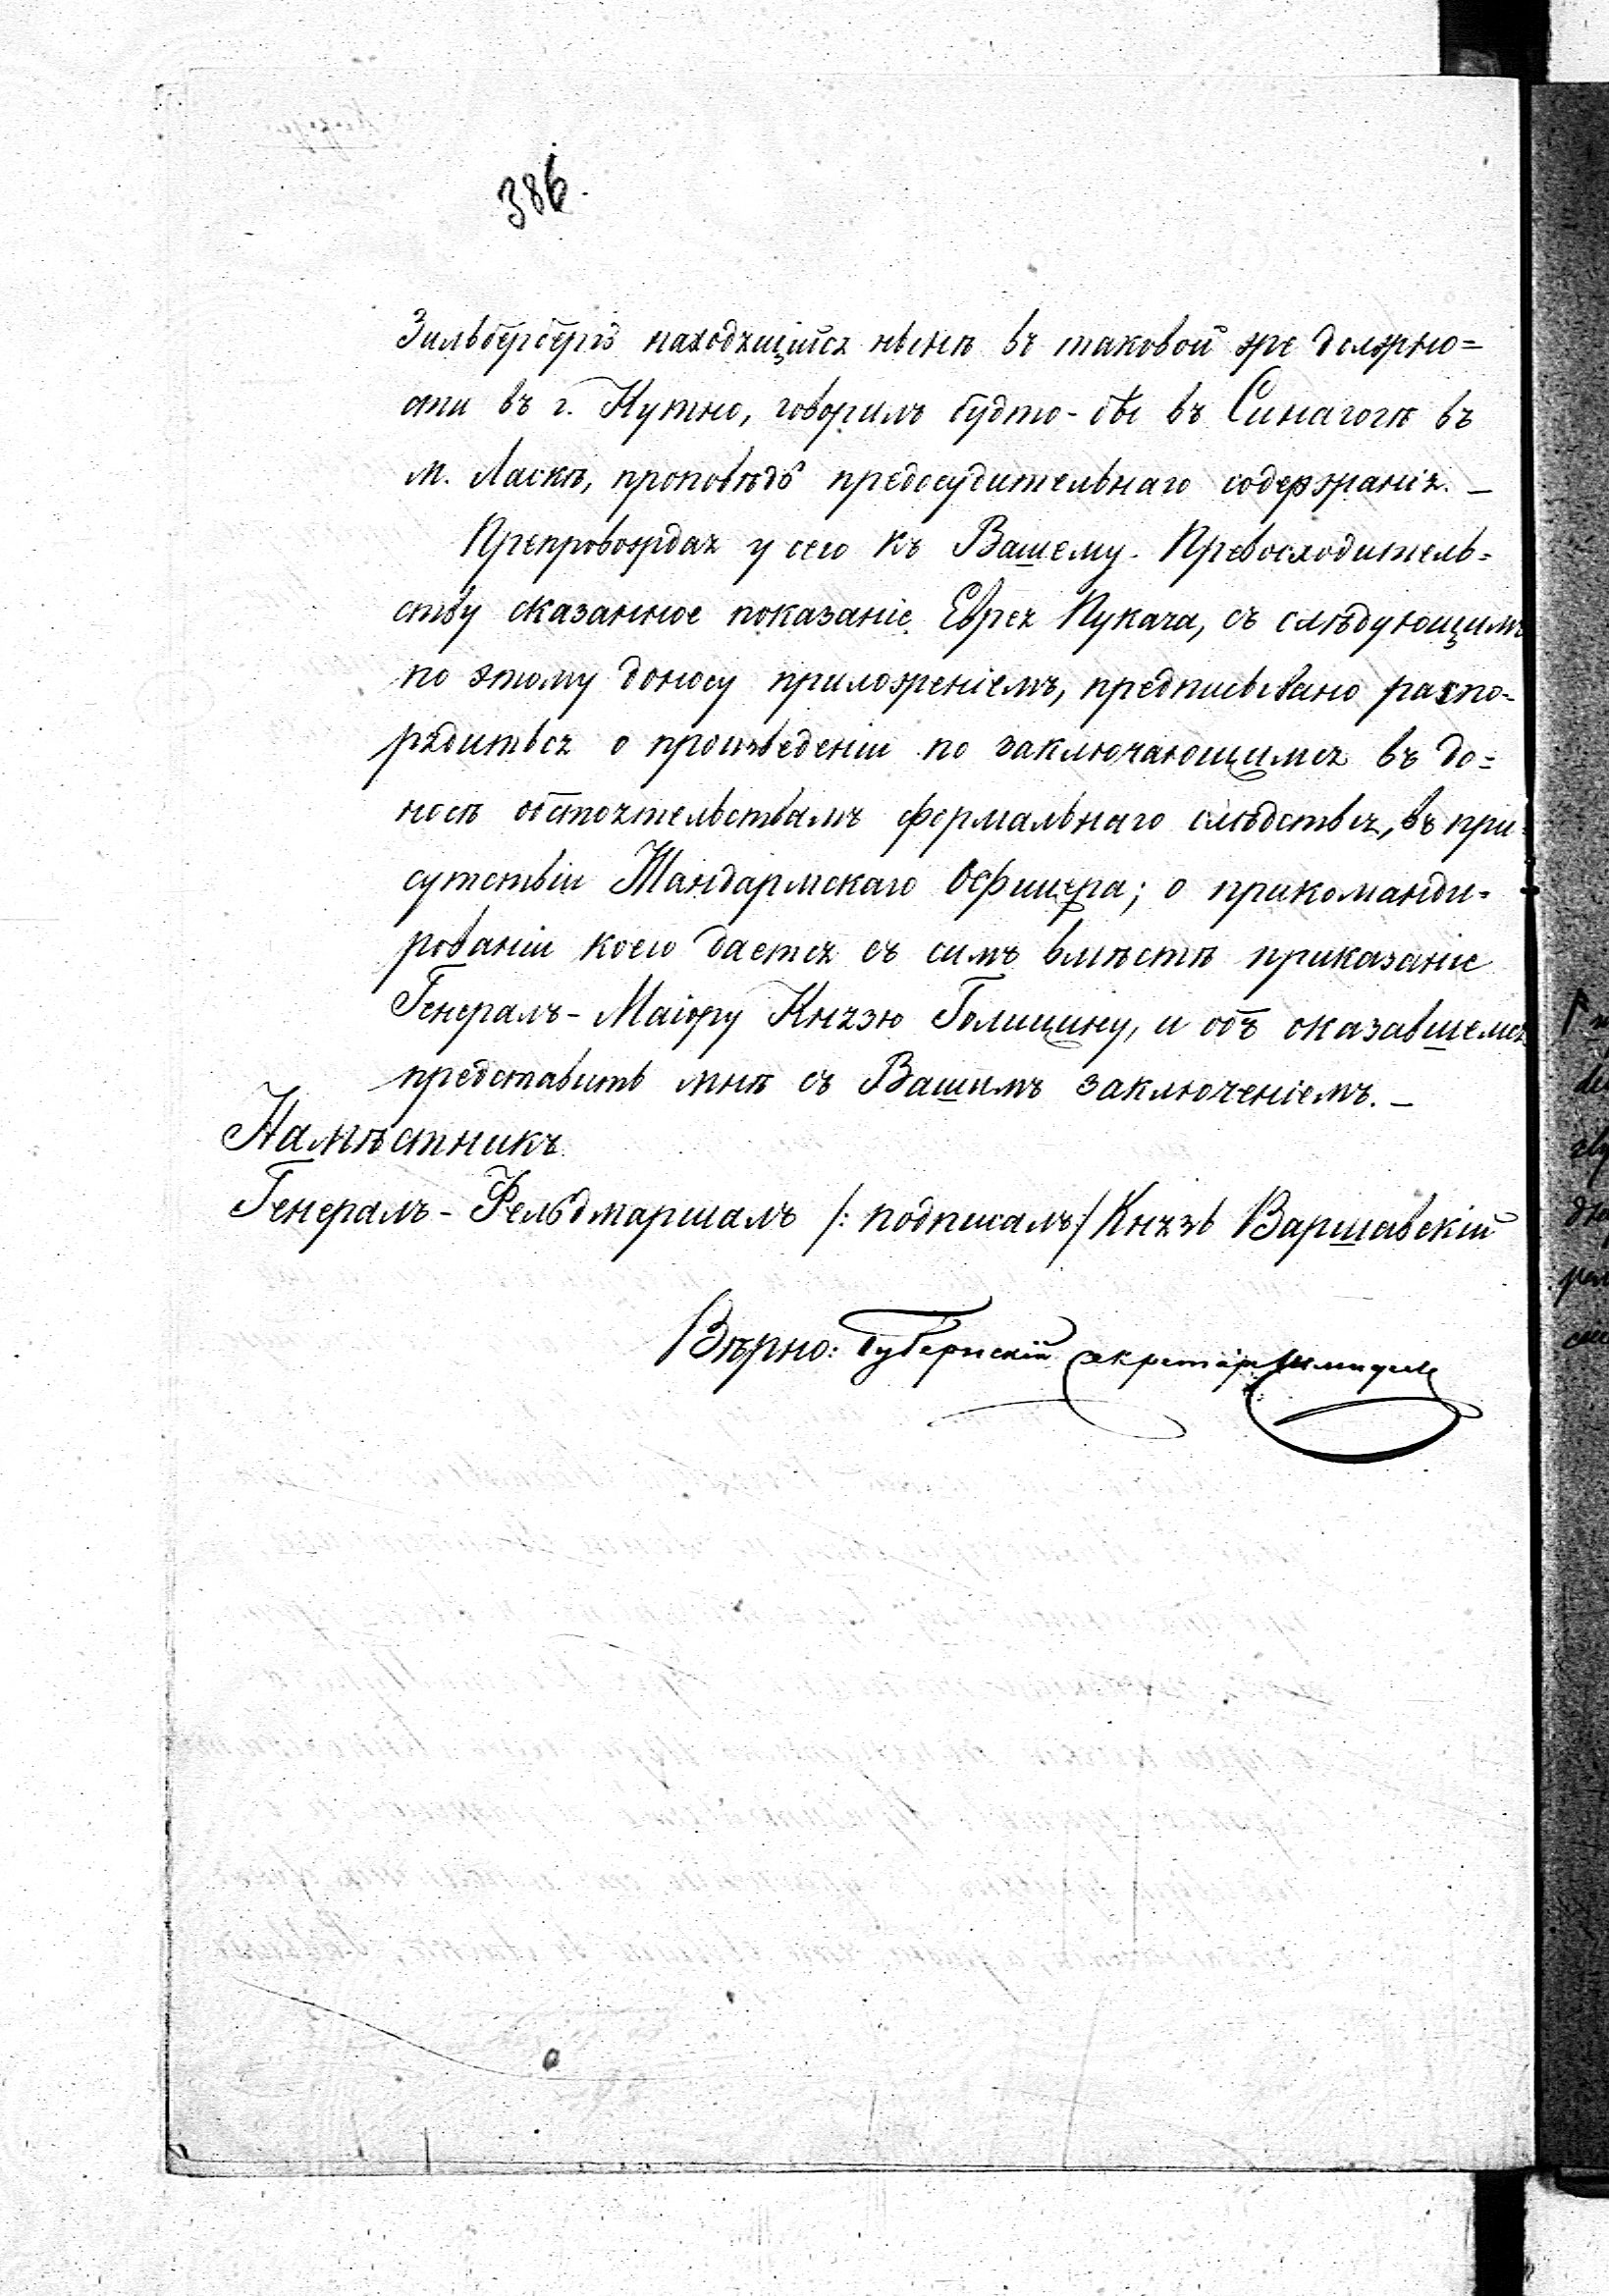 386.
Зильбербергъ находящійся нынѣ въ таковой же должно=
сти въ г. Кутно, говорилъ будто-бы въ Синагогѣ въ
м. Ласкѣ, проповѣдь предосудительнаго содержанія. —
Препровождая у сего къ Вашему Превосходитель=
ству сказанное показаніе Еврея Пукача, съ слѣдующимъ
по этому доносу приложеніемъ, предписывано распо=
рядиться о произведеніи по заключающимся въ до=
носѣ обстоятельствамъ формальнаго слѣдствія, въ при=
сутствіи Жандармскаго Офицера; о прикоманди=
рованіи коего дается съ симъ вмѣстѣ приказаніе
Генералъ-Маіору Князю Голицину, и объ оказавшемся
представить мнѣ съ Вашимъ заключеніемъ. —
Намѣстникъ
Генералъ-Фельдмаршалъ /: подписалъ :/ Князь Варшавскій
Вѣрно: Губернскій Секретарь